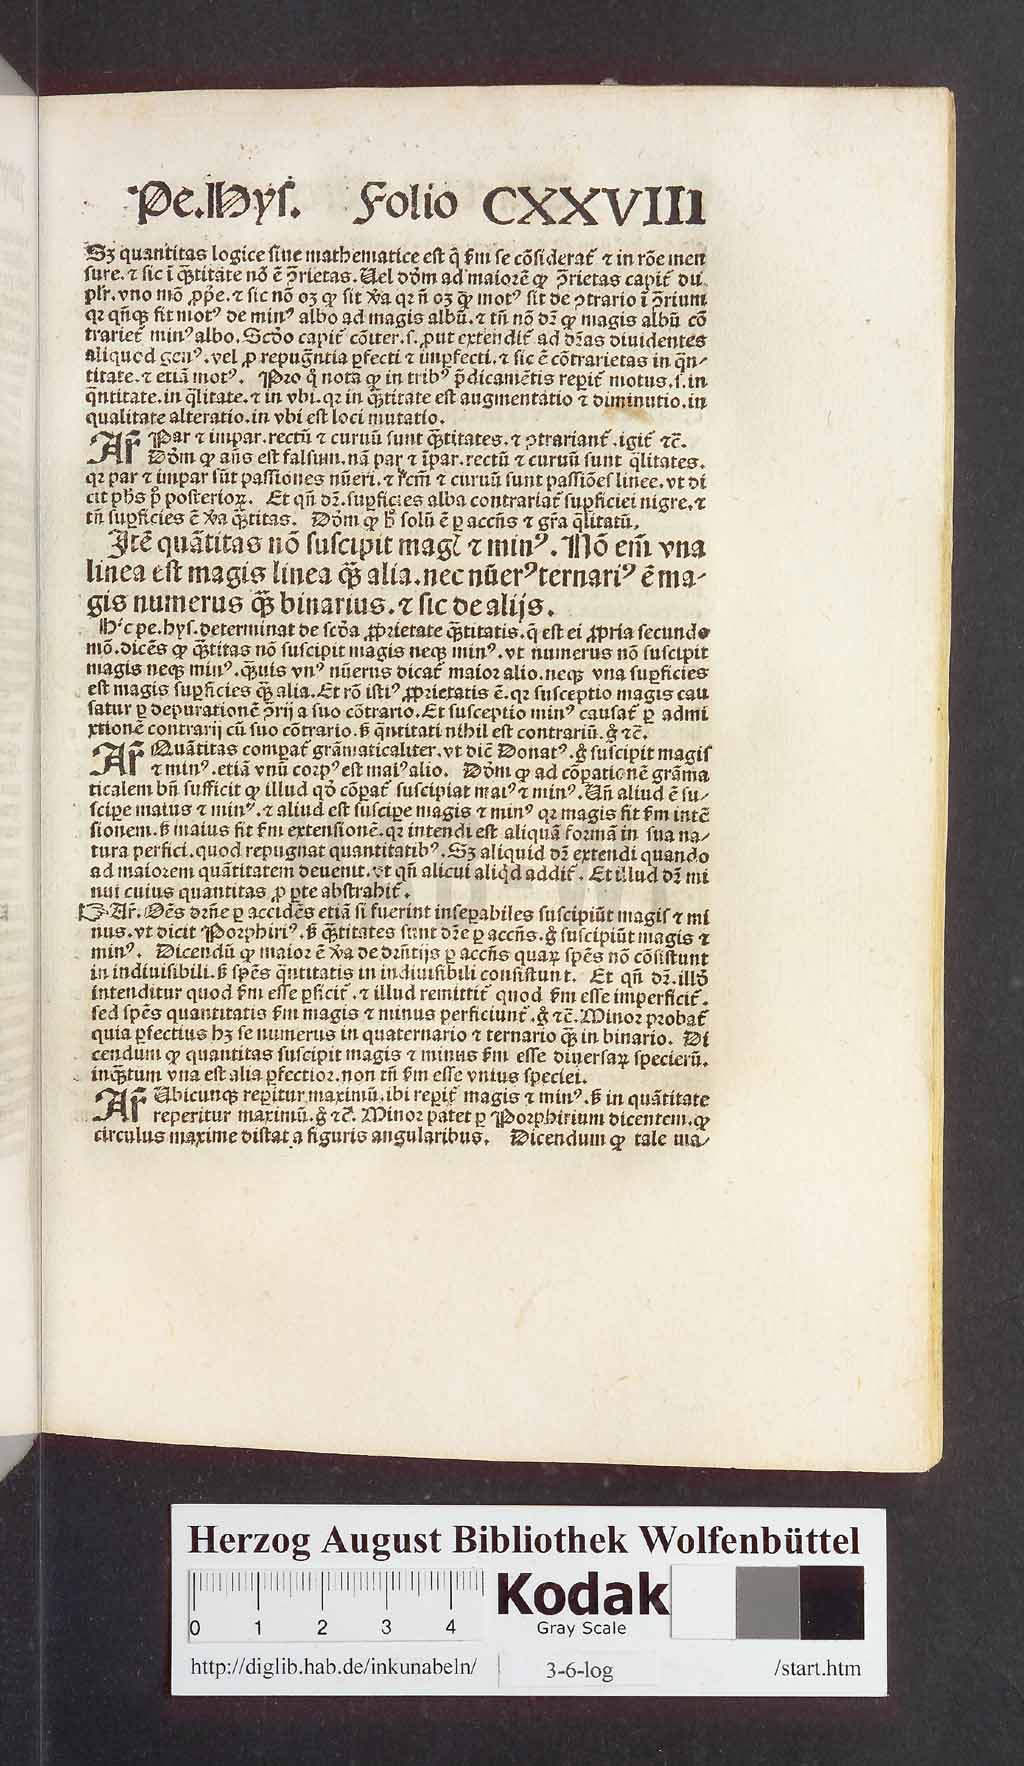 Pe.Hys. Folio CXXVIII
Sꝫ quantitas logice siue mathematice est q̄ fm se cōsiderat᷑ ⁊ in rōe men
sure. ⁊ sic ī q̄titate nō ē ꝯ̄rietas. Uel dōm ad maiorē ꝙ ꝯ̄rietas capit᷑ du
plr̄. vno mō ꝓpe. ⁊ sic nō oꝫ ꝙ sit ꝟa qr n̄ oꝫ ꝙ̄ motꝰ sit de ꝯtrario ī ꝯ̄rium
qr qn̄qꝫ fit motꝰ de minꝰ albo ad magis albū. ⁊ tn̄ nō dr̄ ꝙ magis albū cō
trariet᷑ minꝰ albo. Scdo capit᷑ cōiter. s. ꝓut extendit᷑ ad dr̄as diuidentes
aliquod genꝰ. vel ꝓ repugn̄tia ꝑfecti ⁊ imꝑfecti. ⁊ sic ē cōtrarietas in q̄n-
titate. ⁊ etiā motꝰ. Pro qͦ nota ꝙ in tribꝰ p̄dicamētis reꝑit᷑ motus. s. in
q̄ntitate. in q̄litate. ⁊ in vbi. qr in q̄titate est augmentatio ⁊ diminutio. in
qualitate alteratio. in vbi est loci mutatio.
Ar̄ Par ⁊ impar. rectū ⁊ curuū sunt q̄titates. ⁊ ꝯtrariant᷑. igit᷑ ⁊c̄.
Dōm ꝙ an̄s est falsum. nā par ⁊ īpar. rectū ⁊ curuū sunt q̄litates.
qr par ⁊ impar sūt passiones nūeri. ⁊ rc̄m ⁊ curuū sunt passiōes linee. vt di
cit ph̄s pͦ posterioꝝ. Et qn̄ dr̄. suꝑficies alba contrariat᷑ suꝑficiei nigre. ⁊
tn̄ suꝑficies ē ꝟa q̄titas. Dōm ꝙ hͦ solū ē ꝑ accn̄s ⁊ gr̄a q̄litatū.
Itē quātitas nō suscipit magꝭ ⁊ minꝰ. Nō em̄ vna
linea est magis linea q̄ꝫ alia. nec nūerꝰ ternariꝰ ē ma-
gis numerus q̄ꝫ binarius. ⁊ sic de alijs.
Hͥc pe. hys. determinat de scd̄a ꝓprietate q̄titatis. q̄ est ei ꝓpria secundo
mō. dicēs ꝙ q̄titas nō suscipit magis neqꝫ minꝰ. vt numerus nō suscipit
magis neqꝫ minꝰ. q̄ꝫuis vnꝰ nūerus dicat᷑ maior alio. neqꝫ vna suꝑficies
est magis suꝑficies q̄ꝫ alia. Et rō istiꝰ ꝓprietatis ē. qr susceptio magis cau
satur ꝑ depurationē ꝯ̄rij a suo cōtrario. Et susceptio minꝰ causat᷑ ꝑ admi
xtionē contrarij cū suo cōtrario. ß q̄ntitati nihil est contrariū. gͦ ⁊c̄.
Ar̄ Quātitas comꝑat᷑ grāmaticaliter. vt diē Donatꝰ. gͦ suscipit magis
⁊ minꝰ. etiā vnū corpꝰ est maiꝰ alio. Dōm ꝙ ad cōꝑationē grāma
ticalem bn̄ sufficit ꝙ illud qd̄ cōꝑat᷑ suscipiat maiꝰ ⁊ minꝰ. Un̄ aliud ē su-
scipe maius ⁊ minꝰ. ⁊ aliud est suscipe magis ⁊ minꝰ qr magis fit fm intē
sionem. ß maius fit fm extensionē. qr intendi est aliquā formā in sua na-
tura perfici. quod repugnat quantitatibꝰ. Sꝫ aliquid dr̄ extendi quando
ad maiorem quātitatem deuenit. vt qn̄ alicui aliqd̄ addit᷑. Et illud dr̄ mi
nui cuius quantitas ꝓ ꝑte abstrahit᷑.
Ar̄. Oēs dr̄ne ꝑ accidēs etiā si fuerint inseꝑabiles suscipiūt magis ⁊ mi
nus. vt dicit Porphiriꝰ. ß q̄titates sunt dr̄e ꝑ accn̄s. gͦ suscipiūt magis ⁊
minꝰ. Dicendū ꝙ maior ē ꝟa de drn̄tijs ꝑ accn̄s quaꝝ spēs nō cōsistunt
in indiuisibili. ß spēs q̄ntitatis in indiuisibili consistunt. Et qn̄ dr̄. illd̄
intenditur quod fm esse ꝑficit᷑. ⁊ illud remittit᷑ quod fm esse imperficit᷑.
sed spēs quantitatis fm magis ⁊ minus perficiunt᷑. gͦ ⁊c̄. Minor probat᷑
quia ꝑfectius hꝫ se numerus in quaternario ⁊ ternario q̄ꝫ in binario. Di
cendum ꝙ quantitas suscipit magis ⁊ minus fm esse diuersaꝝ specierū.
inq̄ꝫtum vna est alia ꝑfectior. non tn̄ fm esse vnius speciei.
Ar̄ Ubicunqꝫ reꝑitur maximū. ibi reꝑit᷑ magis ⁊ minꝰ. ß in quātitate
reperitur maximū. gͦ ⁊c̄. Minor patet ꝑ Porphirium dicentem. ꝙ
circulus maxime distat a figuris angularibus. Dicendum ꝙ tale ma-
Herzog August Bibliothek Wolfenbüttel
0 1 2 3 4
Kodak
Gray Scale
http://diglib.hab.de/inkunabeln/ 3-6-log /start.htm